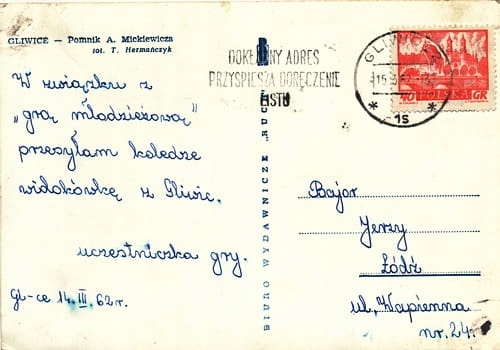 GLIWICE — Pomnik A. Mickiewicza
fot. T. Hermańczyk
W związku z
„grą młodzieżową”
przesyłam koledze
widokówkę z Gliwic.
uczestniczka gry.
Gl-ce 14.III.62r.
BIURO WYDAWNICZE „RUCH”
ADRES
PRZYSPIESZA DORĘCZENIE
LISTU
GLIWICE
* 1s *
40 POLSKA GR
Bajor
Jerzy
Łódź
ul. Wapienna
nr. 24.